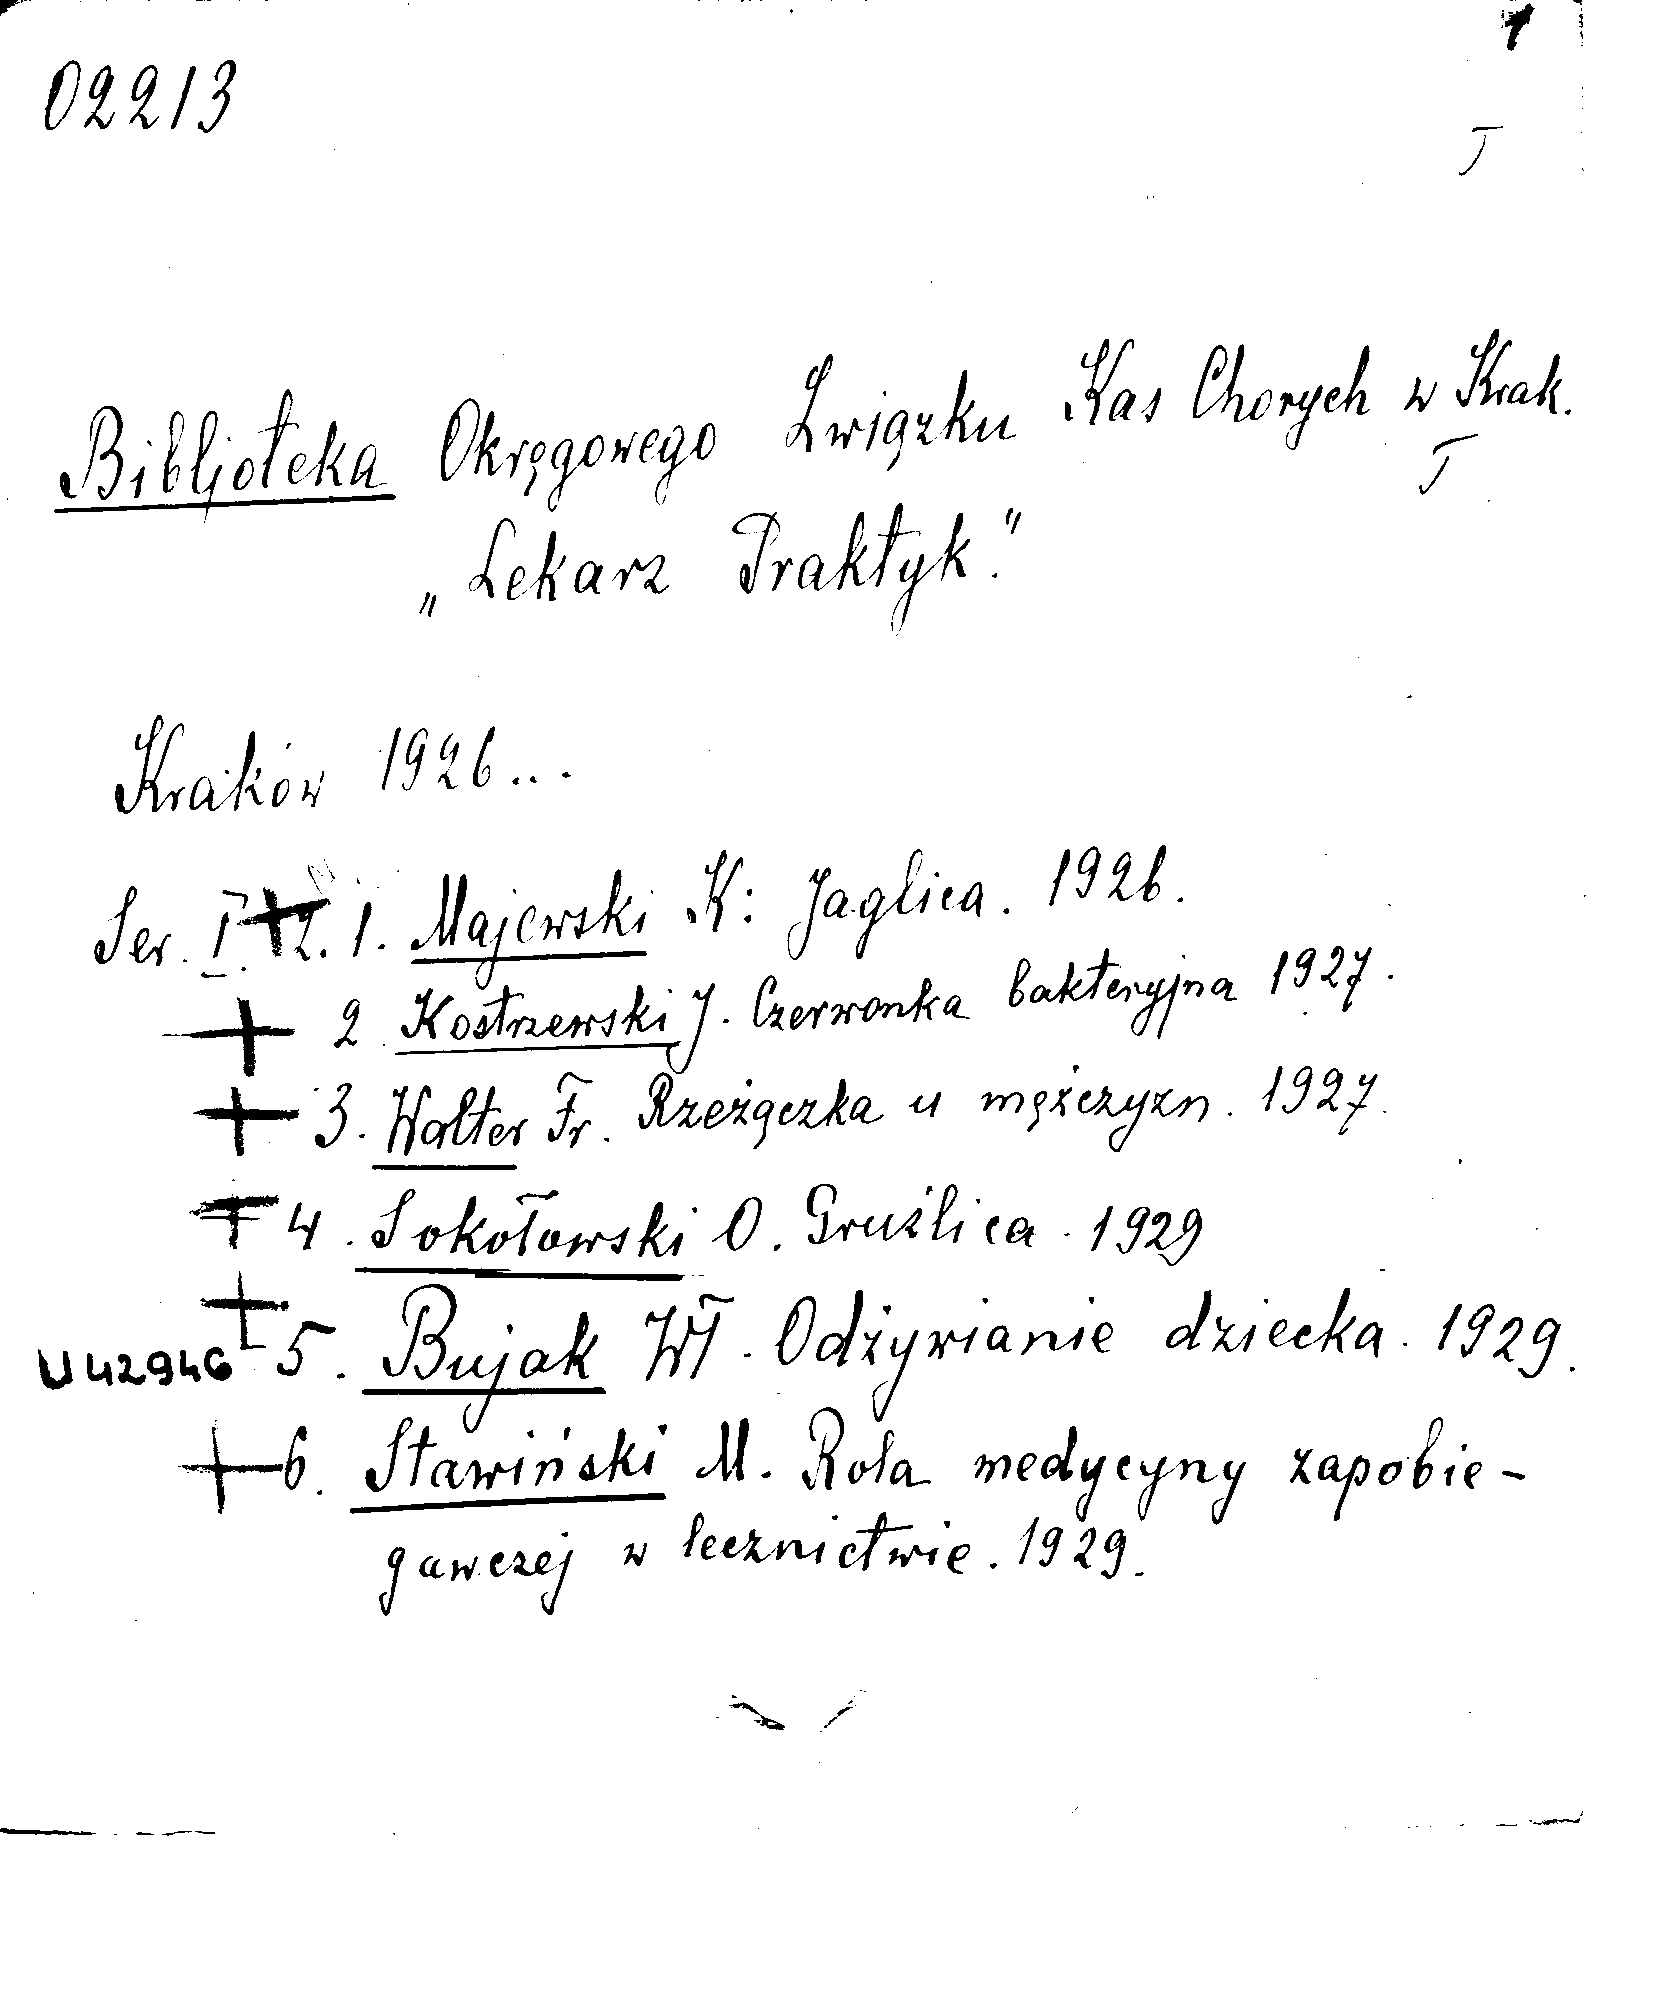 1
02213
T
Bibljoteka Okręgowego Związku Kas Chorych w Krak.
T
„Lekarz Praktyk."
Kraków 1926...
Ser. I. + Z. 1. Majewski K: Jaglica. 1926.
+ 2. Kostrzewski J. Czerwonka bakteryjna 1927.
+ 3. Walter Fr. Rzeżączka u mężczyzn. 1927.
+ 4. Sokołowski O. Gruźlica. 1929
+
U42946 5. Bujak Wł. Odżywianie dziecka. 1929.
+ 6. Stawiński M. Rola medycyny zapobie-
gawczej w lecznictwie. 1929.